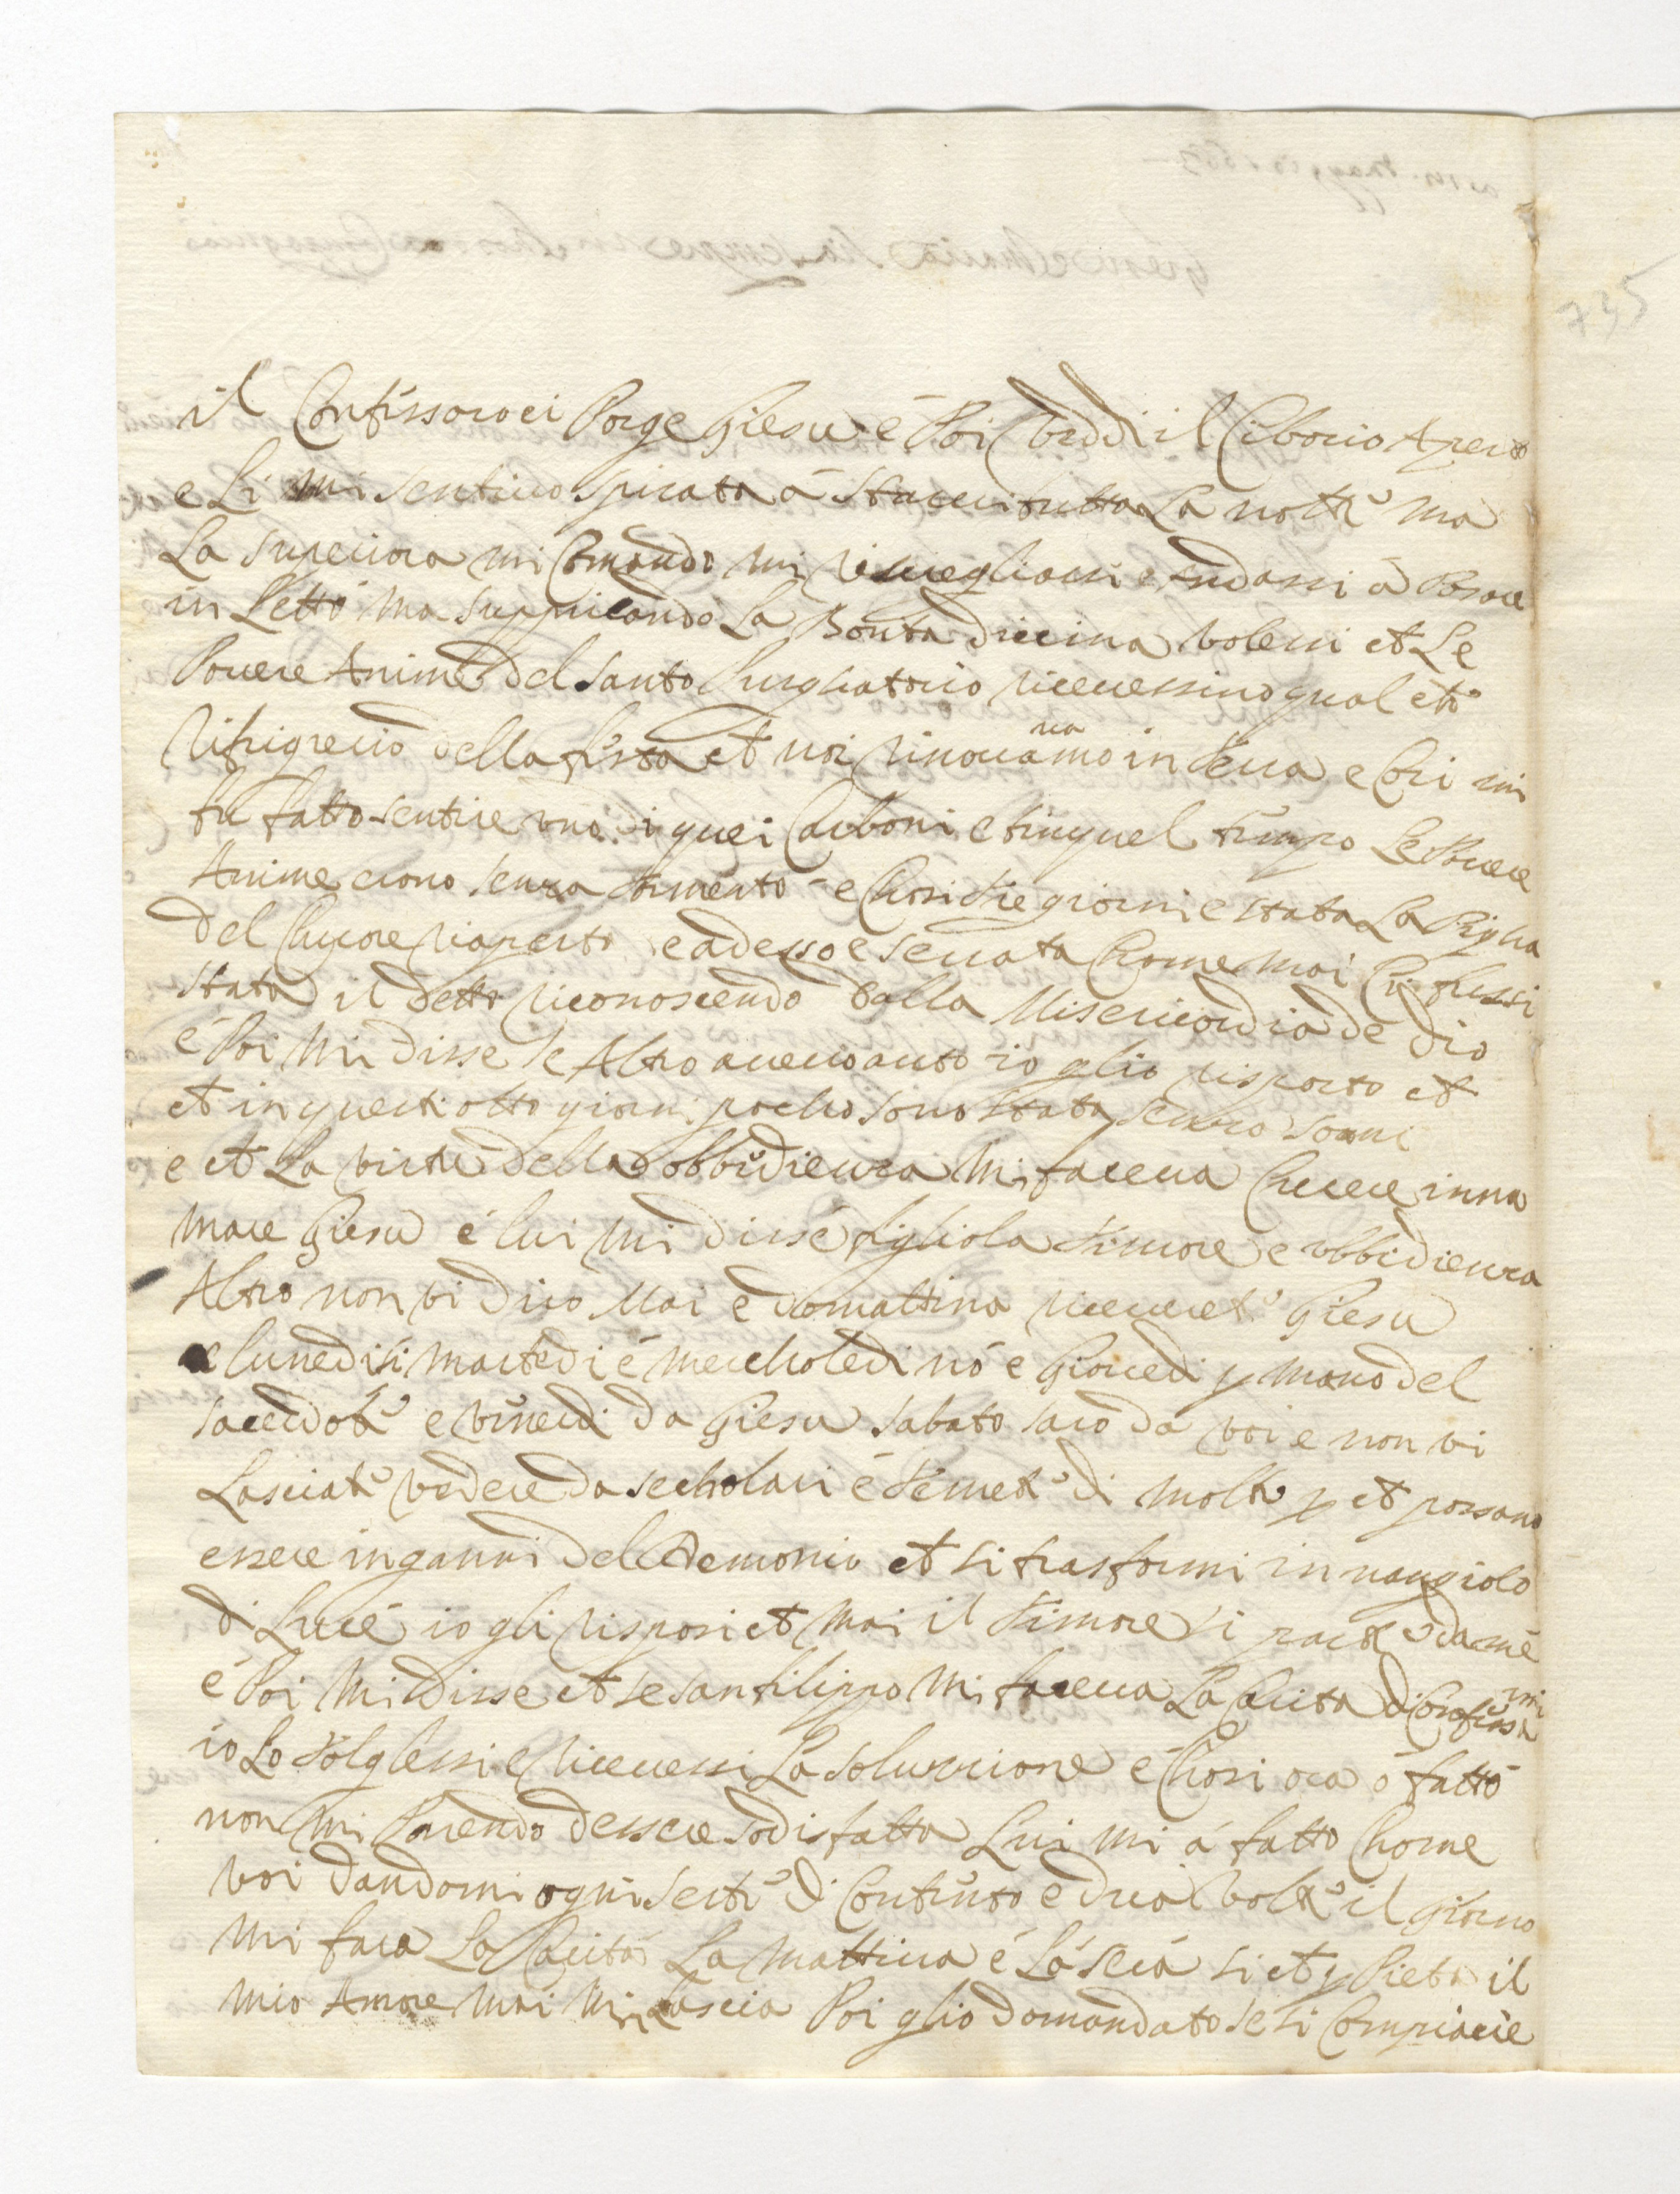 735
il Confissoro ei Porge Giesu é Poi Veddi il Ciborio Aperto
e Li mi sentivo spirata á Starcui tutta La notte ma
La superiora mi Comando mi risuegliassi e Andassi á Posare
in Letto ma supplicando La Bonta diuina volessi et Le
Pouere Anime del Santo Purghatorio riceuessino qual
rifrigerio della festa et noi rinouauamo in Terra e Cosi mi
fu fatto sentire uno di quei Carboni e tinquel tempo Le Pouere
Anime erono senza tormento e Chosi tre giorni e stata La Piagha
del Chuore riaperto e adesso e serrata Chome mai Ci fussi
stata il detto riconoscendo dalla Misericordia de dio
é Poi mi disse se Altro aueuo auto io glio risposto et
et in questi otto giorni pocho sono stata senza
e et La virtu della obbidienza Mi faceua Crecere inna
mare Giesu é lui mi disse figliola timore e obbidienza
Altro non vi dico Mai e domattina riceuerete Giesu
e lunedi si martedi é mercholedi nó e Giouedi p mano del
sacerdote e venerdi da Giesu Sabato saro da voi e non vi
Lasciate vedere da secholari é temete di molto p et possano
essere inganni del Demonio et si trasformi in nangiolo
di Luce io gli risposi et mai il timore si parte da mé
é Poi Mi disse et se san filippo Mi faceua La Carita di Confessarmi
io Lo Tolglessi e riceuessi La soluzzione é Chosi ora ó fatto
non Mi Parendo dessere sodisfatta Lui mi á fatto Chome
voi dandomi ogni sorte di Contento e dua volte il giorno
Mi fara La Carita La Mattina é La Sera si et p Pieta il
mio Amore mai Mi Lascia Poi glio domandato se si Compiacie